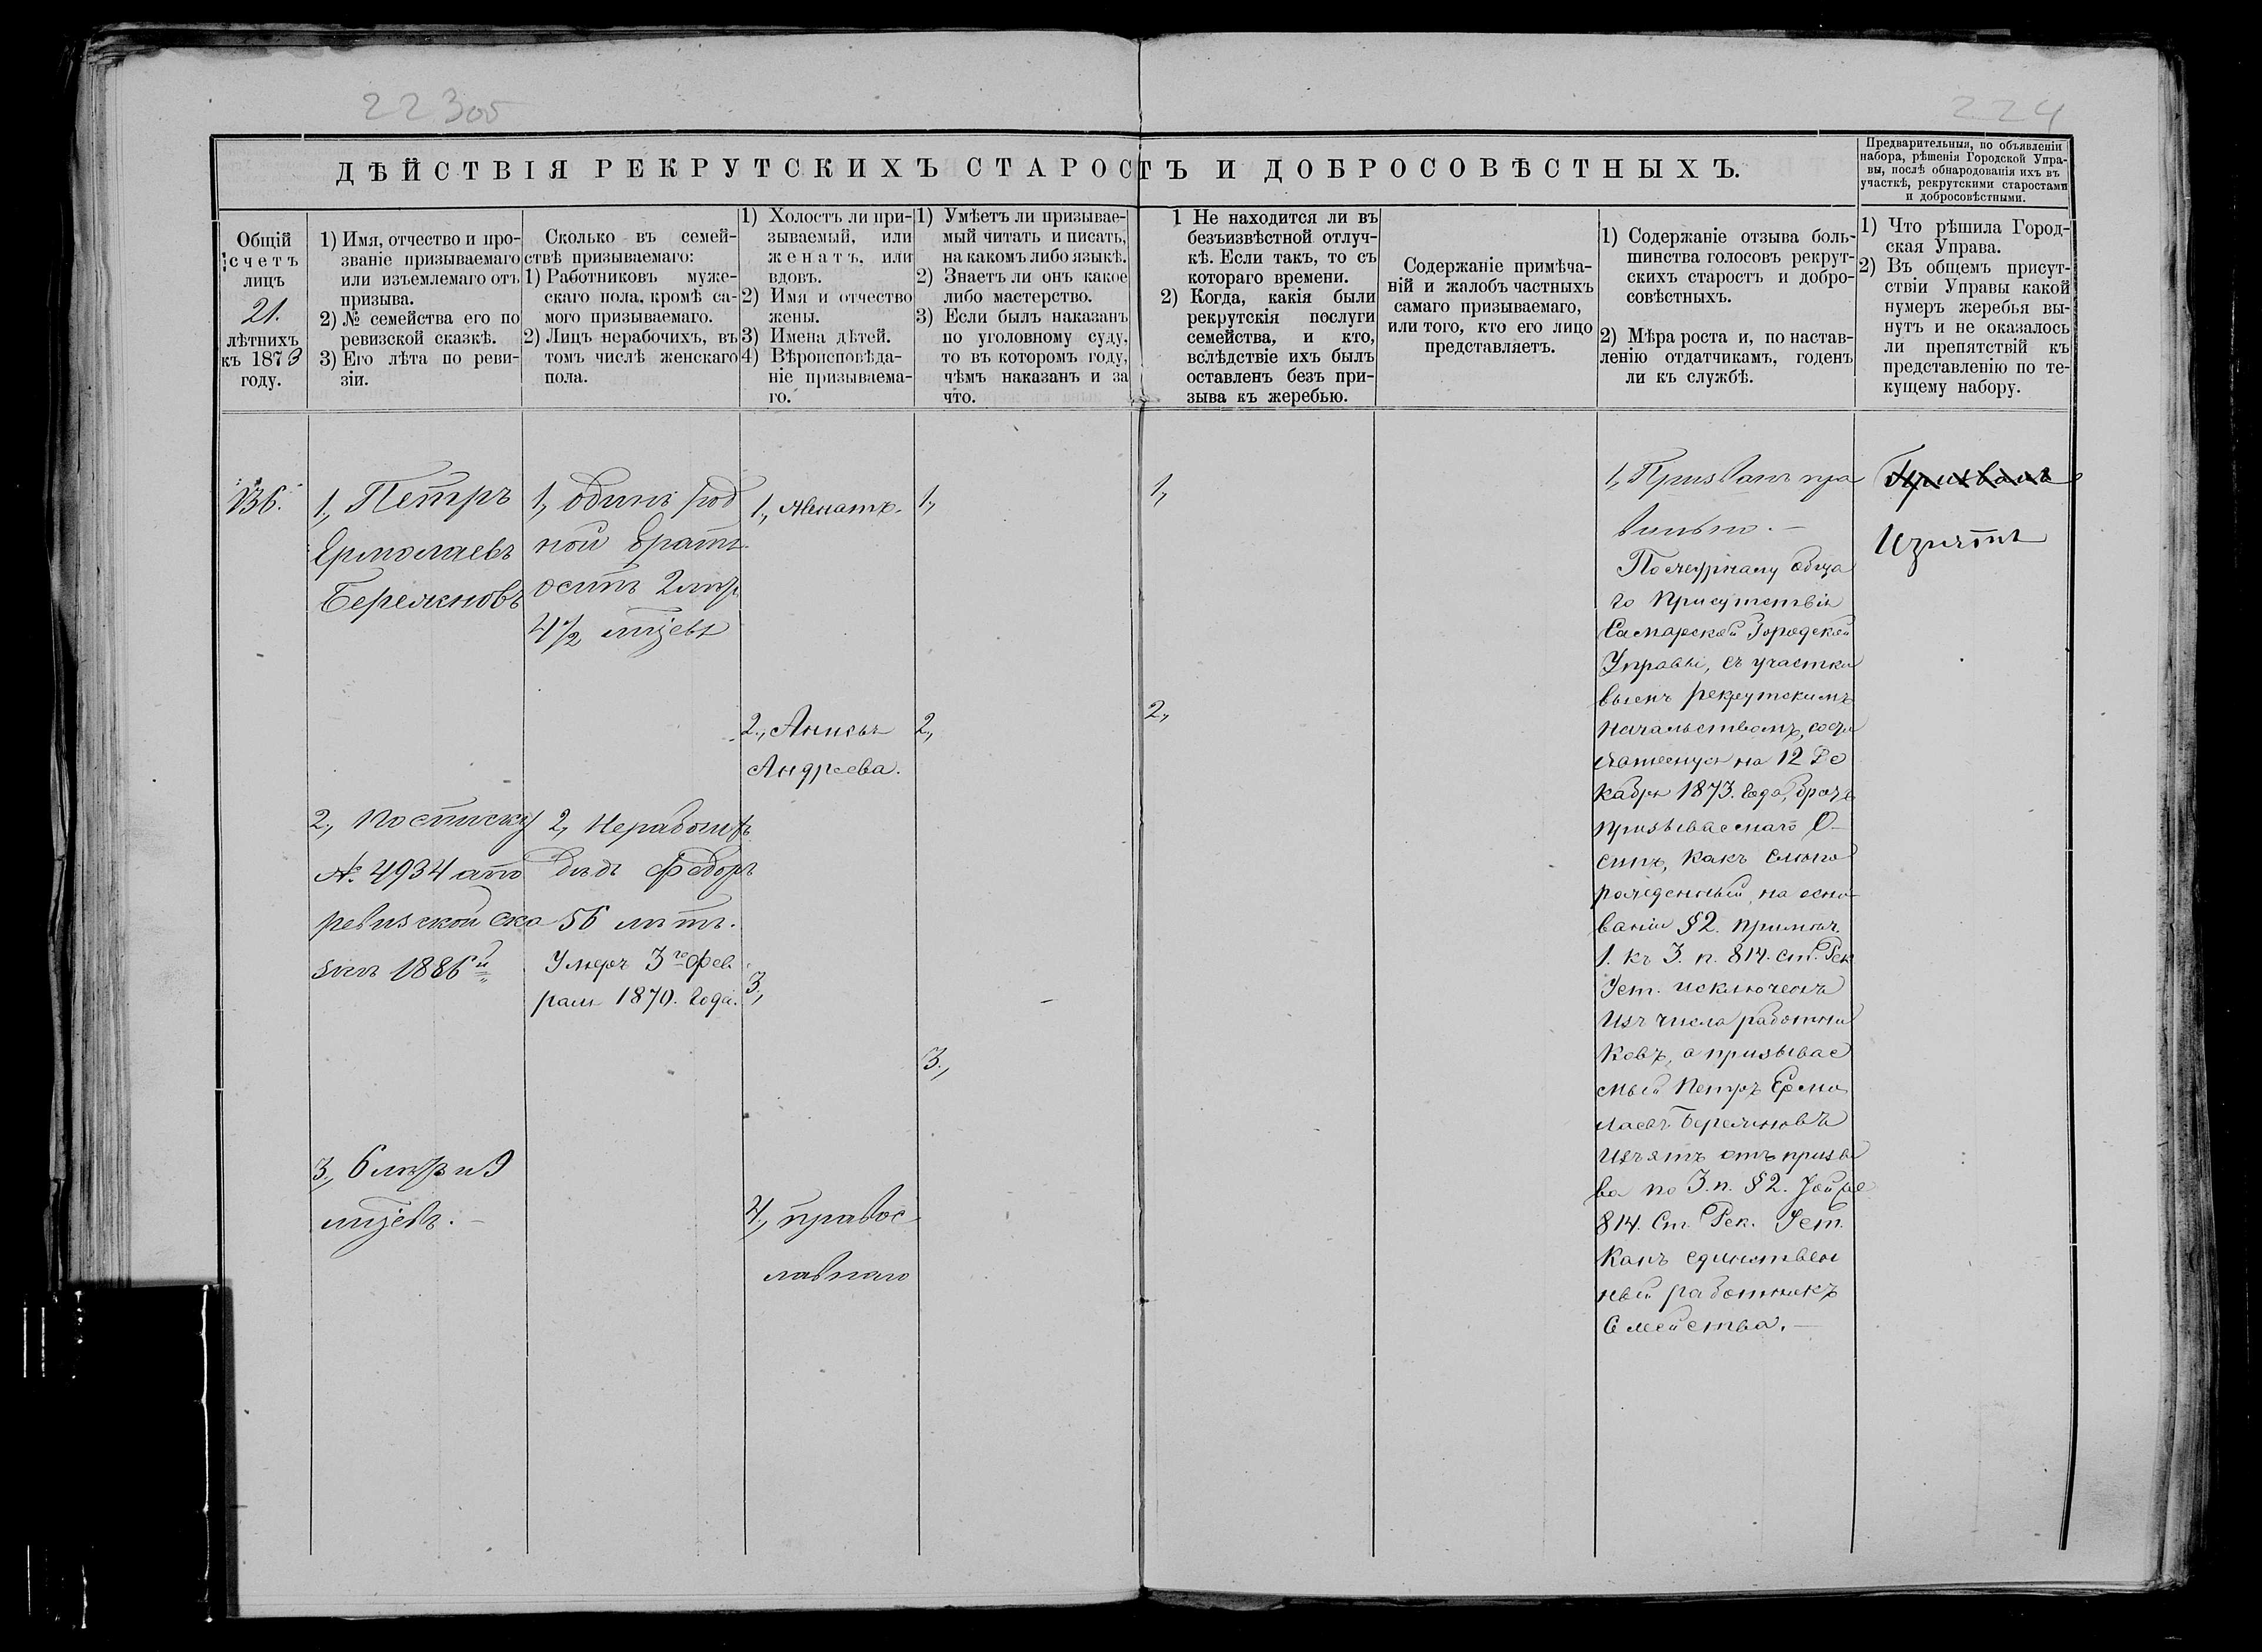 223об
224
ДѢЙСТВІЯ РЕКРУТСКИХЪ СТАРОСТЪ И ДОБРОСОВѢСТНЫХЪ.
Предварительныя, по объявленіи
набора, рѣшенія Городской Упра-
вы, послѣ обнародованія ихъ въ
участкѣ, рекрутскими старостами
и добросовѣстными.
Общій
счетъ
лицъ
21.
лѣтнихъ
къ 1873
году.
1) Имя, отчество и про-
званіе призываемаго
или изъемлемаго отъ
призыва.
2) № семейства его по
ревизской сказкѣ.
3) Его лѣта по реви-
зіи.
Сколько въ семей-
ствѣ призываемаго:
1) Работниковъ муже-
скаго пола, кромѣ са-
мого призываемаго.
2) Лицъ нерабочихъ, въ
томъ числѣ женскаго
пола.
1) Холостъ ли при-
зываемый, или
женатъ, или
вдовъ.
2) Имя и отчество
жены.
3) Имена дѣтей.
4) Вѣроисповѣда-
ніе призываема-
го.
1) Умѣетъ ли призывае-
мый читать и писать,
на какомъ либо языкѣ.
2) Знаетъ ли онъ какое
либо мастерство.
3) Если былъ наказанъ
по уголовному суду,
то въ которомъ году,
чѣмъ наказанъ и за
что.
1 Не находится ли въ
безъизвѣстной отлуч-
кѣ. Если такъ, то съ
котораго времени.
2) Когда, какія были
рекрутскія послуги
семейства, и кто,
вслѣдствіе ихъ былъ
оставленъ безъ при-
зыва къ жеребью.
Содержаніе примѣча-
ній и жалобъ частныхъ
самаго призываемаго,
или того, кто его лицо
представляетъ.
1) Содержаніе отзыва боль-
шинства голосовъ рекрут-
скихъ старостъ и добро-
совѣстныхъ.
2) Мѣра роста и, по настав-
ленію отдатчикамъ, годенъ
ли къ службѣ.
1) Что рѣшила Город-
ская Управа.
2) Въ общемъ присут-
ствіи Управы какой
нумеръ жеребья вы-
нутъ и не оказалось
ли препятствій къ
представленію по те-
кущему набору.
136.
1, Петръ
Ермолаевъ
Бережновъ
2, по списку
№ 4934 а по
ревизской ска
3, 6 лѣтъ и 9
1, одинъ род
ной братъ
2 лѣтъ
4 1/2
2, Нерабочихъ
дѣдъ Федоръ
56 лѣтъ.
Умеръ 3го Фев
раля 1870. Года.
1, женатъ.
2,
Андреева.
3,
4, правос
лавнаго
1,
2,
3,
1,
2,
1, Призванъ пра
вильно. —
По журналу обща
го Присутствія
Самарской Городской
Управы, съ участко
вымъ рекрутскимъ
Начальствомъ, состо
на 12 Де
кабря 1873. Года, братъ
призываемаго О-
сипъ, какъ слѣпо
рожденный, на осно-
ваніи §2. примѣч.
1. къ 3. п. 814. ст. Рек
Уст. исключенъ
изъ числа работни
ковъ, а призывае
мый Петръ Ермо
лаевъ Бережновъ
изъятъ отъ призы
ва по 3. п. §2.
814. Ст. Рек. Уст.
какъ единствен
ный работникъ
Семейства. —
Призванъ
Изъятъ